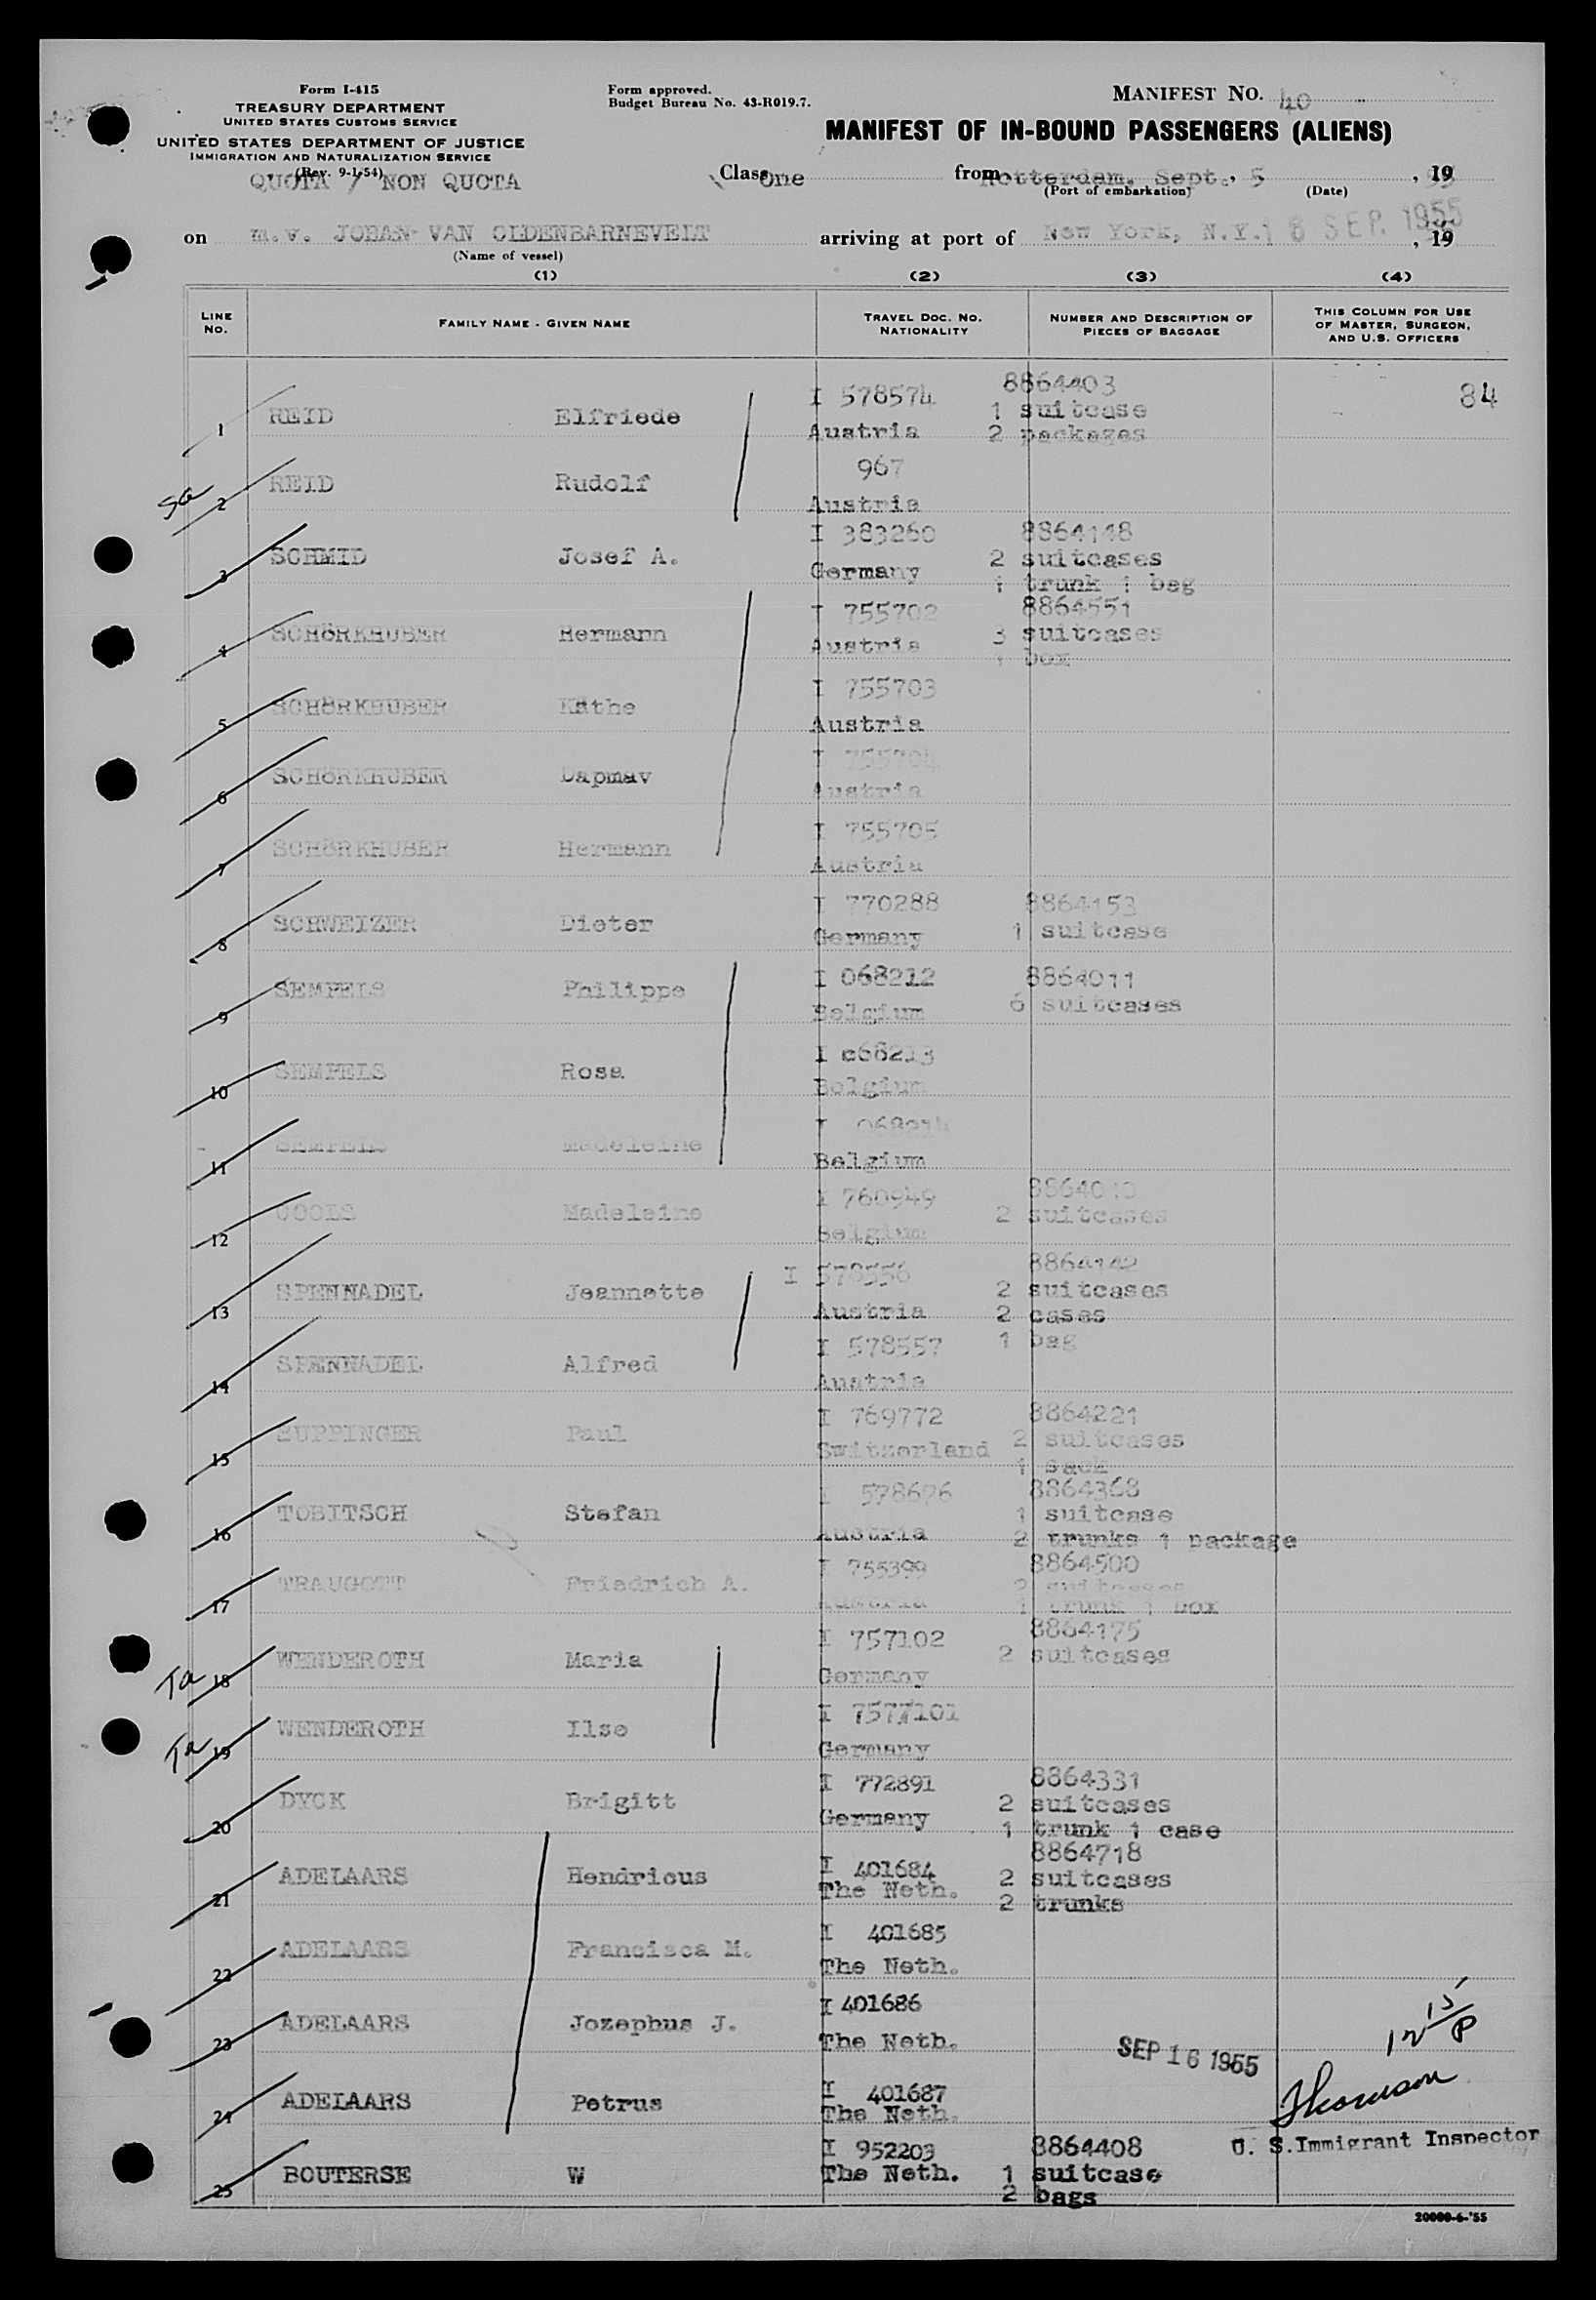 Form I-415
TREASURY DEPARTMENT
UNITED STATES CUSTOMS SERVICE
UNITED STATES DEPARTMENT OF JUSTICE
IMMIGRATION AND NATURALIZATION SERVICE
(Rev. 9-1-54)
QUOTA / NON QUOTA
Form approved.
Budget Bureau No. 43-R019.7.
MANIFEST NO. 40
MANIFEST OF IN-BOUND PASSENGERS (ALIENS)
Class one from Rotterdam, Sept. 5, 19
(Port of embarkation) (Date)
on m.v. JOHAN VAN OLDENBARNEVELT arriving at port of New York, N.Y. SEP. 1955, 19
(Name of vessel)
(1) (2) (3) (4)
LINE NO. FAMILY NAME - GIVEN NAME TRAVEL DOC. NO. NATIONALITY NUMBER AND DESCRIPTION OF PIECES OF BAGGAGE THIS COLUMN FOR USE OF MASTER, SURGEON, AND U.S. OFFICERS
I 578574 8864403 84
1 REID Elfriede 1 suitcase
Austria 2 packages
967
sa 2 REID Rudolf
Austria
I 383260 8864148
3 SCHMID Josef A. 2 suitcases
Germany 1 trunk 1 bag
I 755702 8864551
4 SCHÖRKHUBER Hermann 3 suitcases
Austria 1 box
I 755703
5 SCHÖRKHUBER Käthe
Austria
I 755704
6 SCHÖRKHUBER Dapmav
Austria
I 755705
7 SCHÖRKHUBER Hermann
Austria
I 770288 8864153
8 SCHWEIZER Dieter
Germany 1 suitcase
I 068212 8864011
9 SEMPELS Philippe 6 suitcases
Belgium
I 068213
10 SEMPELS Rosa
Belgium
I 068214
11 SEMPELS Madeleine
Belgium
I 760949
12 COOLS Madeleine 2 suitcases
Belgium
I 578556 8864142
13 SPENNADEL Jeannette 2 suitcases
Austria 2 cases
I 578557 1 bag
14 SPENNADEL Alfred
Austria
I 769772 8864221
15 Paul 2 suitcases
Switzerland 1 sack
I 578676 8864368
16 TOBITSCH Stefan 1 suitcase
Austria 2 trunks 1 package
I 755399 8864500
17 TRAUGOTT Friedrich A. 2 suitcases
Austria 1 trunk 1 box
I 757102 8864175
Ta 18 WENDEROTH Maria 2 suitcases
Germany
I 7577101
Ta 19 WENDEROTH Ilse
Germany
I 772891 8864331
20 DYCK Brigitt 2 suitcases
Germany 1 trunk 1 case
I 401684 8864718
21 ADELAARS Hendricus 2 suitcases
The Neth. 2 trunks
I 401685
22 ADELAARS Francisca M.
The Neth.
I 401686
23 ADELAARS Jozephus J.
The Neth.
SEP 16 1955
12 15/P
I 401687
24 ADELAARS Petrus
The Neth.
I 952203 8864408 U. S. Immigrant Inspector
25 BOUTERSE W The Neth. 1 suitcase
2 bags
20000-6-'55